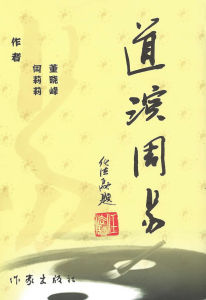 道演周易
任法融题
作者
董晓峰
何莉莉
作家出版社